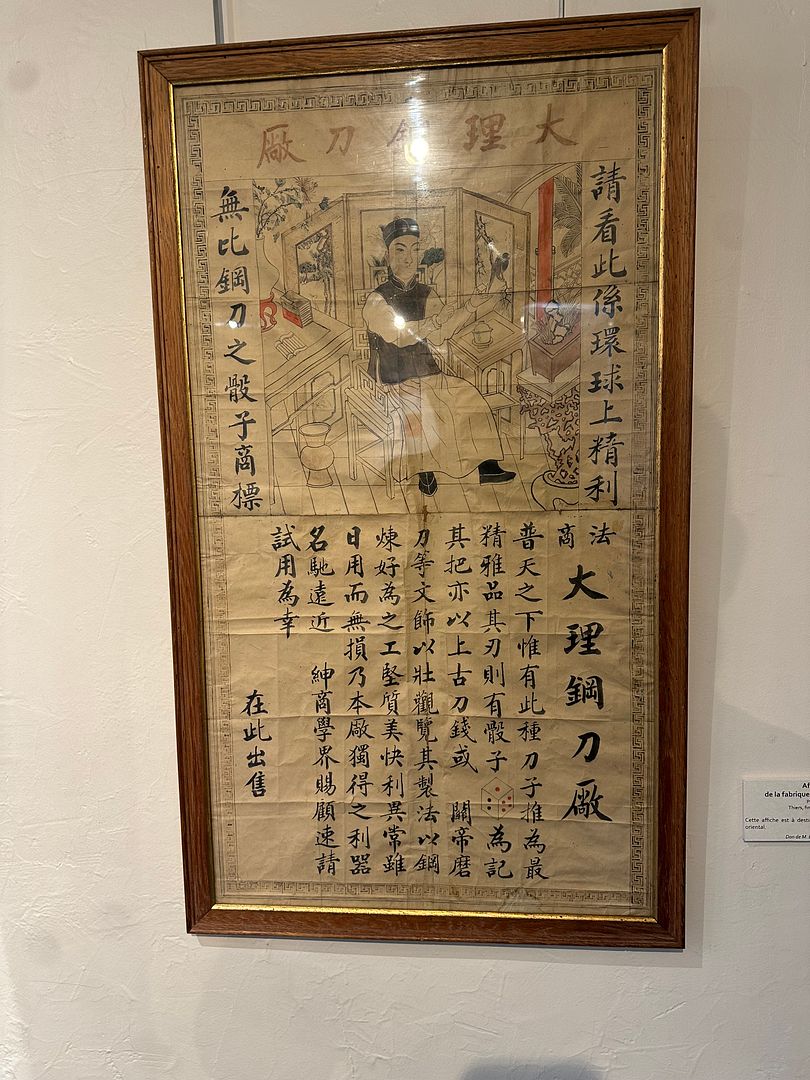 大理鋼刀廠
請看此係環球上精利
無比鋼刀之骰子商標
法商
大理鋼刀廠
普天之下惟有此種刀子推為最
精雅品其刃則有骰子為記
其把亦以上古刀錢或 關帝磨
刀等文飾以壯觀覽其製法以鋼
煉好為之工堅質美快利異常雖
日用而無損乃本廠獨得之利器
名馳遠近 紳商學界賜顧速請
試用為幸
在此出售
de la fabrique
Thiers,
Cette affiche est à
oriental.
Don de M.